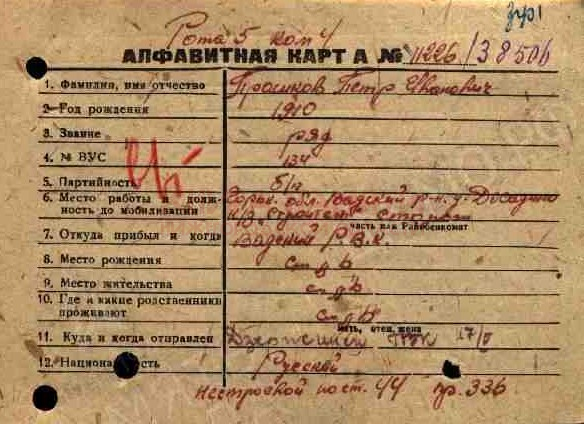 Рота 5 ком 4
АЛФАВИТНАЯ КАРТА № 11226/38506
1. Фамилия, имя отчество Прошков Петр Иванович
2. Год рождения 1910
3. Звание ряд
4. № ВУС 134
5. Партийность б/п
6. Место работы и долж- Горьк. обл. Вадский р-н. д.
ность до мобилизации
часть или Райвоенкомат
7. Откуда прибыл и когда Вадский Р.В.К.
8. Место рождения
9. Место жительства
10. Где и какие родственники
проживают
мать, отец, жена
11. Куда и когда отправлен 17/II
12. Национальность Русский
Нестроевой пост. 44 пр. 336